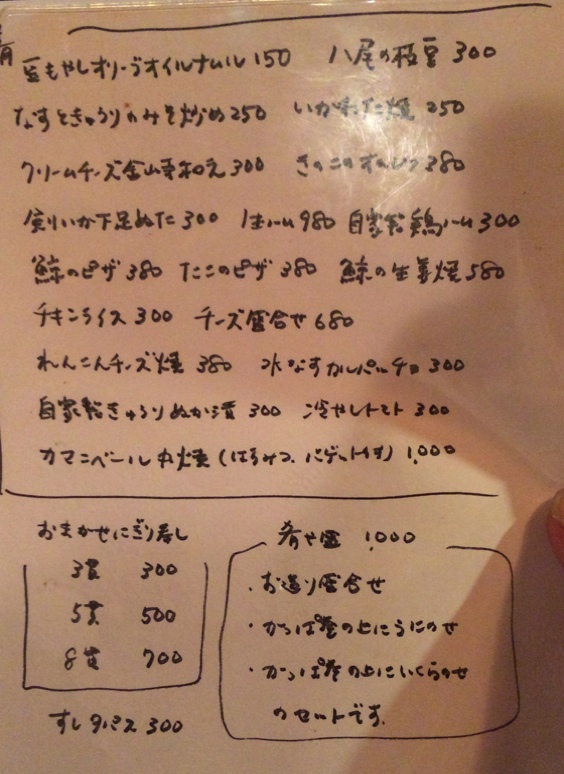 肴
豆もやしオリーブオイルナムル 150 八尾の枝豆 300
なすときゅうりのみそ炒め 250 いかわた焼 250
クリームチーズ金山寺和え 300 きのこのオムレツ 380
剣いか下足ぬた 300 生ハム 980 自家製鶏ハム 300
鯨のピザ 380 たこのピザ 380 鯨の生姜焼 580
チキンライス 300 チーズ盛合せ 680
れんこんチーズ焼 380 水なすカルパッチョ 300
自家製きゅうりぬか漬 300 冷やしトマト 300
カマンベール丸焼 (はちみつ、バゲット付) 1,000
おまかせにぎり寿し
3貫 300
5貫 500
8貫 700
すし 300
肴や盛 1,000
・お造り盛合せ
・かっぱ巻の上にうにのせ
・かっぱ巻の上にいくらのせ
のセットです。